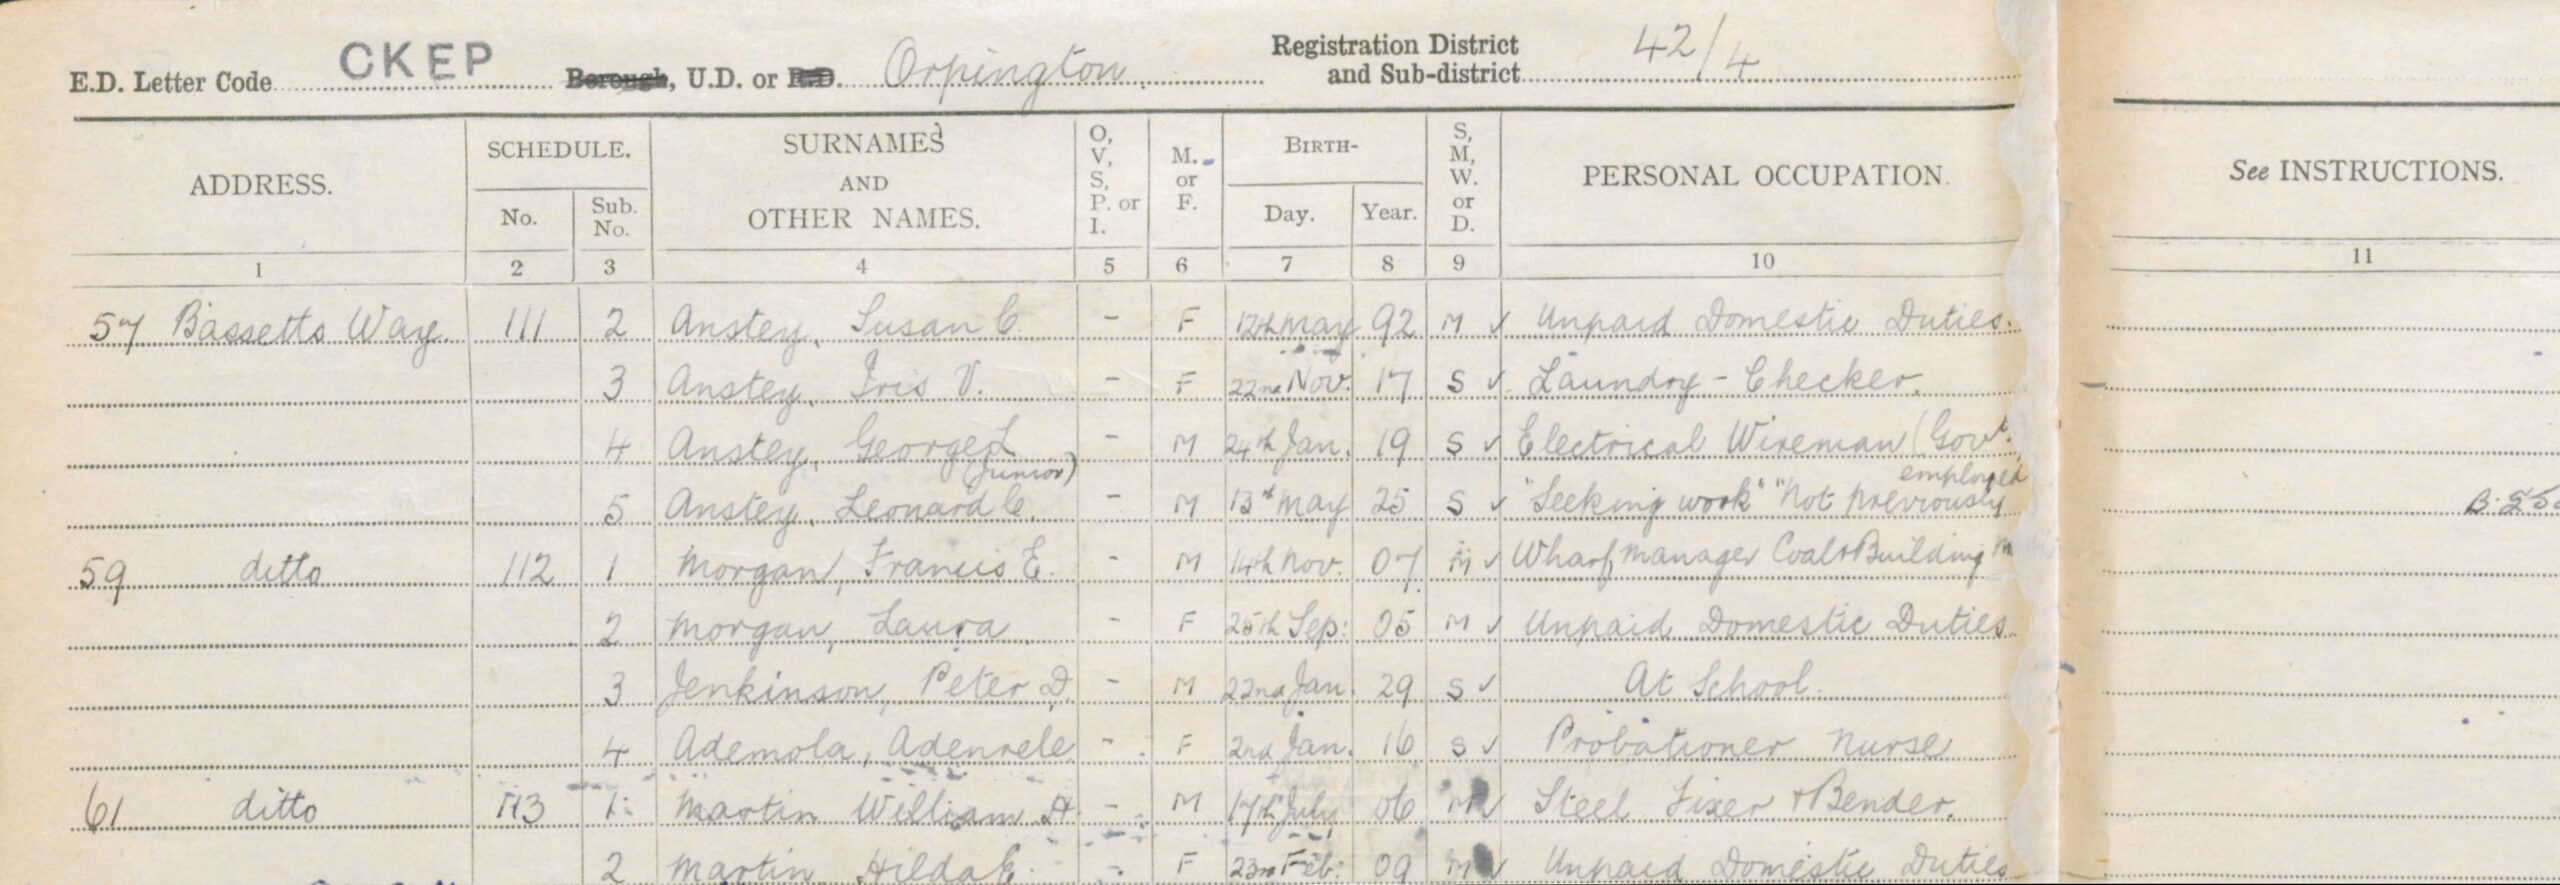 E.D. Letter Code CKEP Borough, U.D. or R.D. Orpington Registration District and Sub-district 42/4
ADDRESS. SCHEDULE. No. Sub. No. SURNAMES AND OTHER NAMES. O, V, S, P. or I. M. or F. BIRTH- Day. Year. S, M, W. or D. PERSONAL OCCUPATION. See INSTRUCTIONS.
1 2 3 4 5 6 7 8 9 10 11
57 Bassetts Way. 111 2 Anstey, Susan C. - F 12th May 92 M ✓ Unpaid Domestic Duties.
3 Anstey, Iris V. - F 22nd Nov. 17 S ✓ Laundry - Checker.
4 Anstey, George L (Junior) - M 24th Jan. 19 S ✓ Electrical Wireman (Govt.
5 Anstey, Leonard C. - M 13th May 25 S ✓ "Seeking work" "Not previously employed
59 ditto 112 1 Morgan, Francis E. - M 14th Nov. 07 M ✓ Wharf Manager Coal & Building M
2 Morgan, Laura - F 25th Sep: 05 M ✓ Unpaid Domestic Duties
3 Jenkinson, Peter D. - M 22nd Jan. 29 S ✓ At School.
4 Ademola, Adenrele - F 2nd Jan. 16 S ✓ Probationer Nurse
61 ditto 113 1 Martin William H - M 17th July 06 M Steel Fixer & Bender.
2 Martin Hilda E. - F 23rd Feb: 09 M Unpaid Domestic Duties